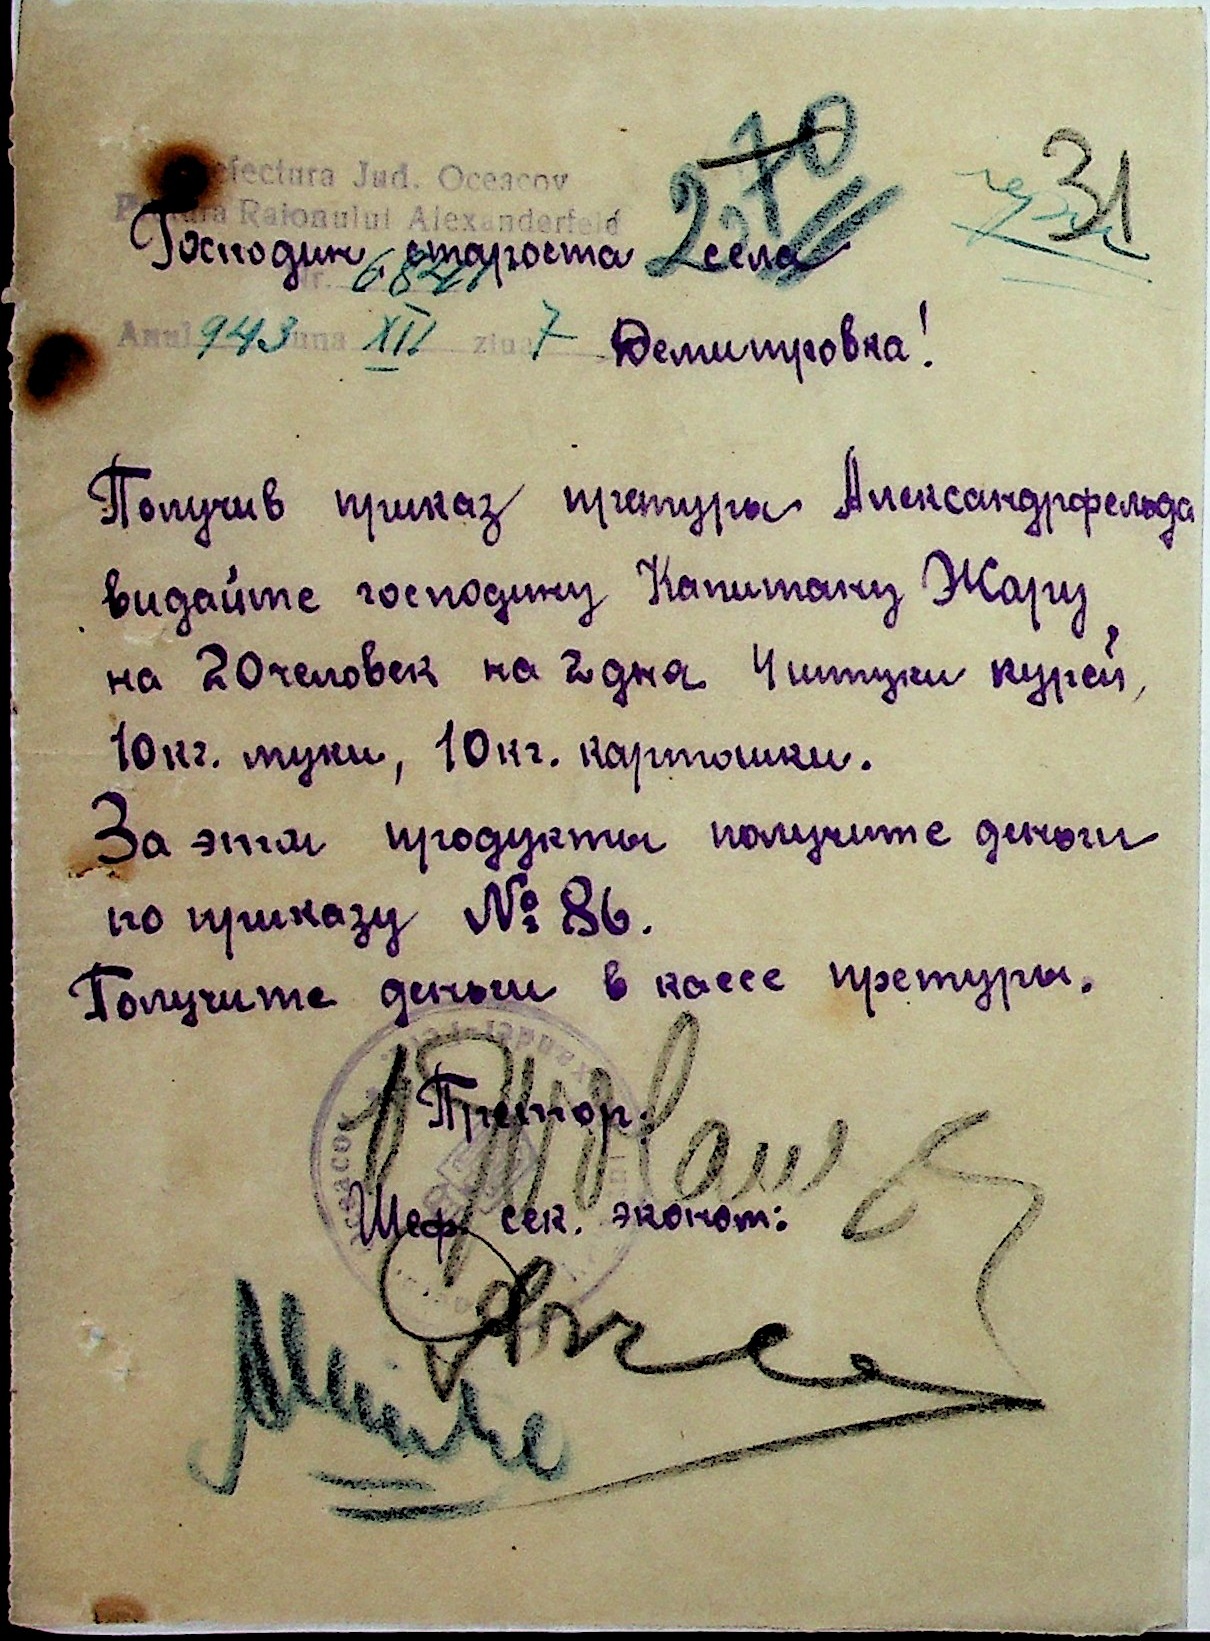 270
31
Prefectura Jud. Oceacov
Pretura Raionului Alexanderfeld
Господин староста села
Nr. 6821
Anul 943 luna XII ziua 7 Демитровна!
Получив приказ претуры Александрфельда
видайте господину Капитану Жару
на 20 человек на 2 дна 4 штуки курей,
10 кг. муки, 10 кг. картошки.
За эти продукты получите деньги
по приказу № 86.
Получите деньги в кассе претуры.
Претор:
Шеф сек. эконом: